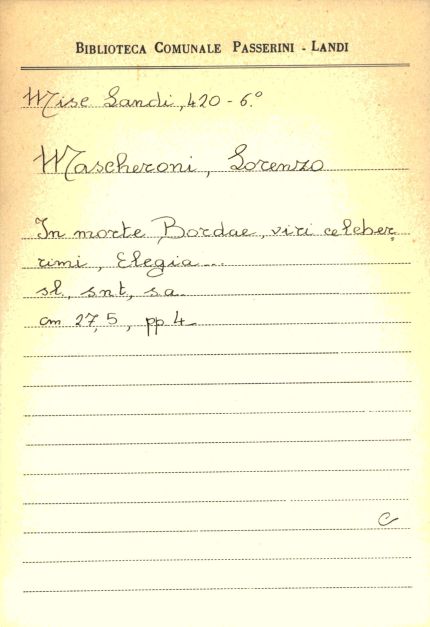 BIBLIOTECA COMUNALE PASSERINI - LANDI
Misc Landi, 420 - 6º
Mascheroni, Lorenzo
In morte Bordae, viri celeber,
rimi, Elegia...
sl, snt, sa.
cm 27,5, pp 4.
C